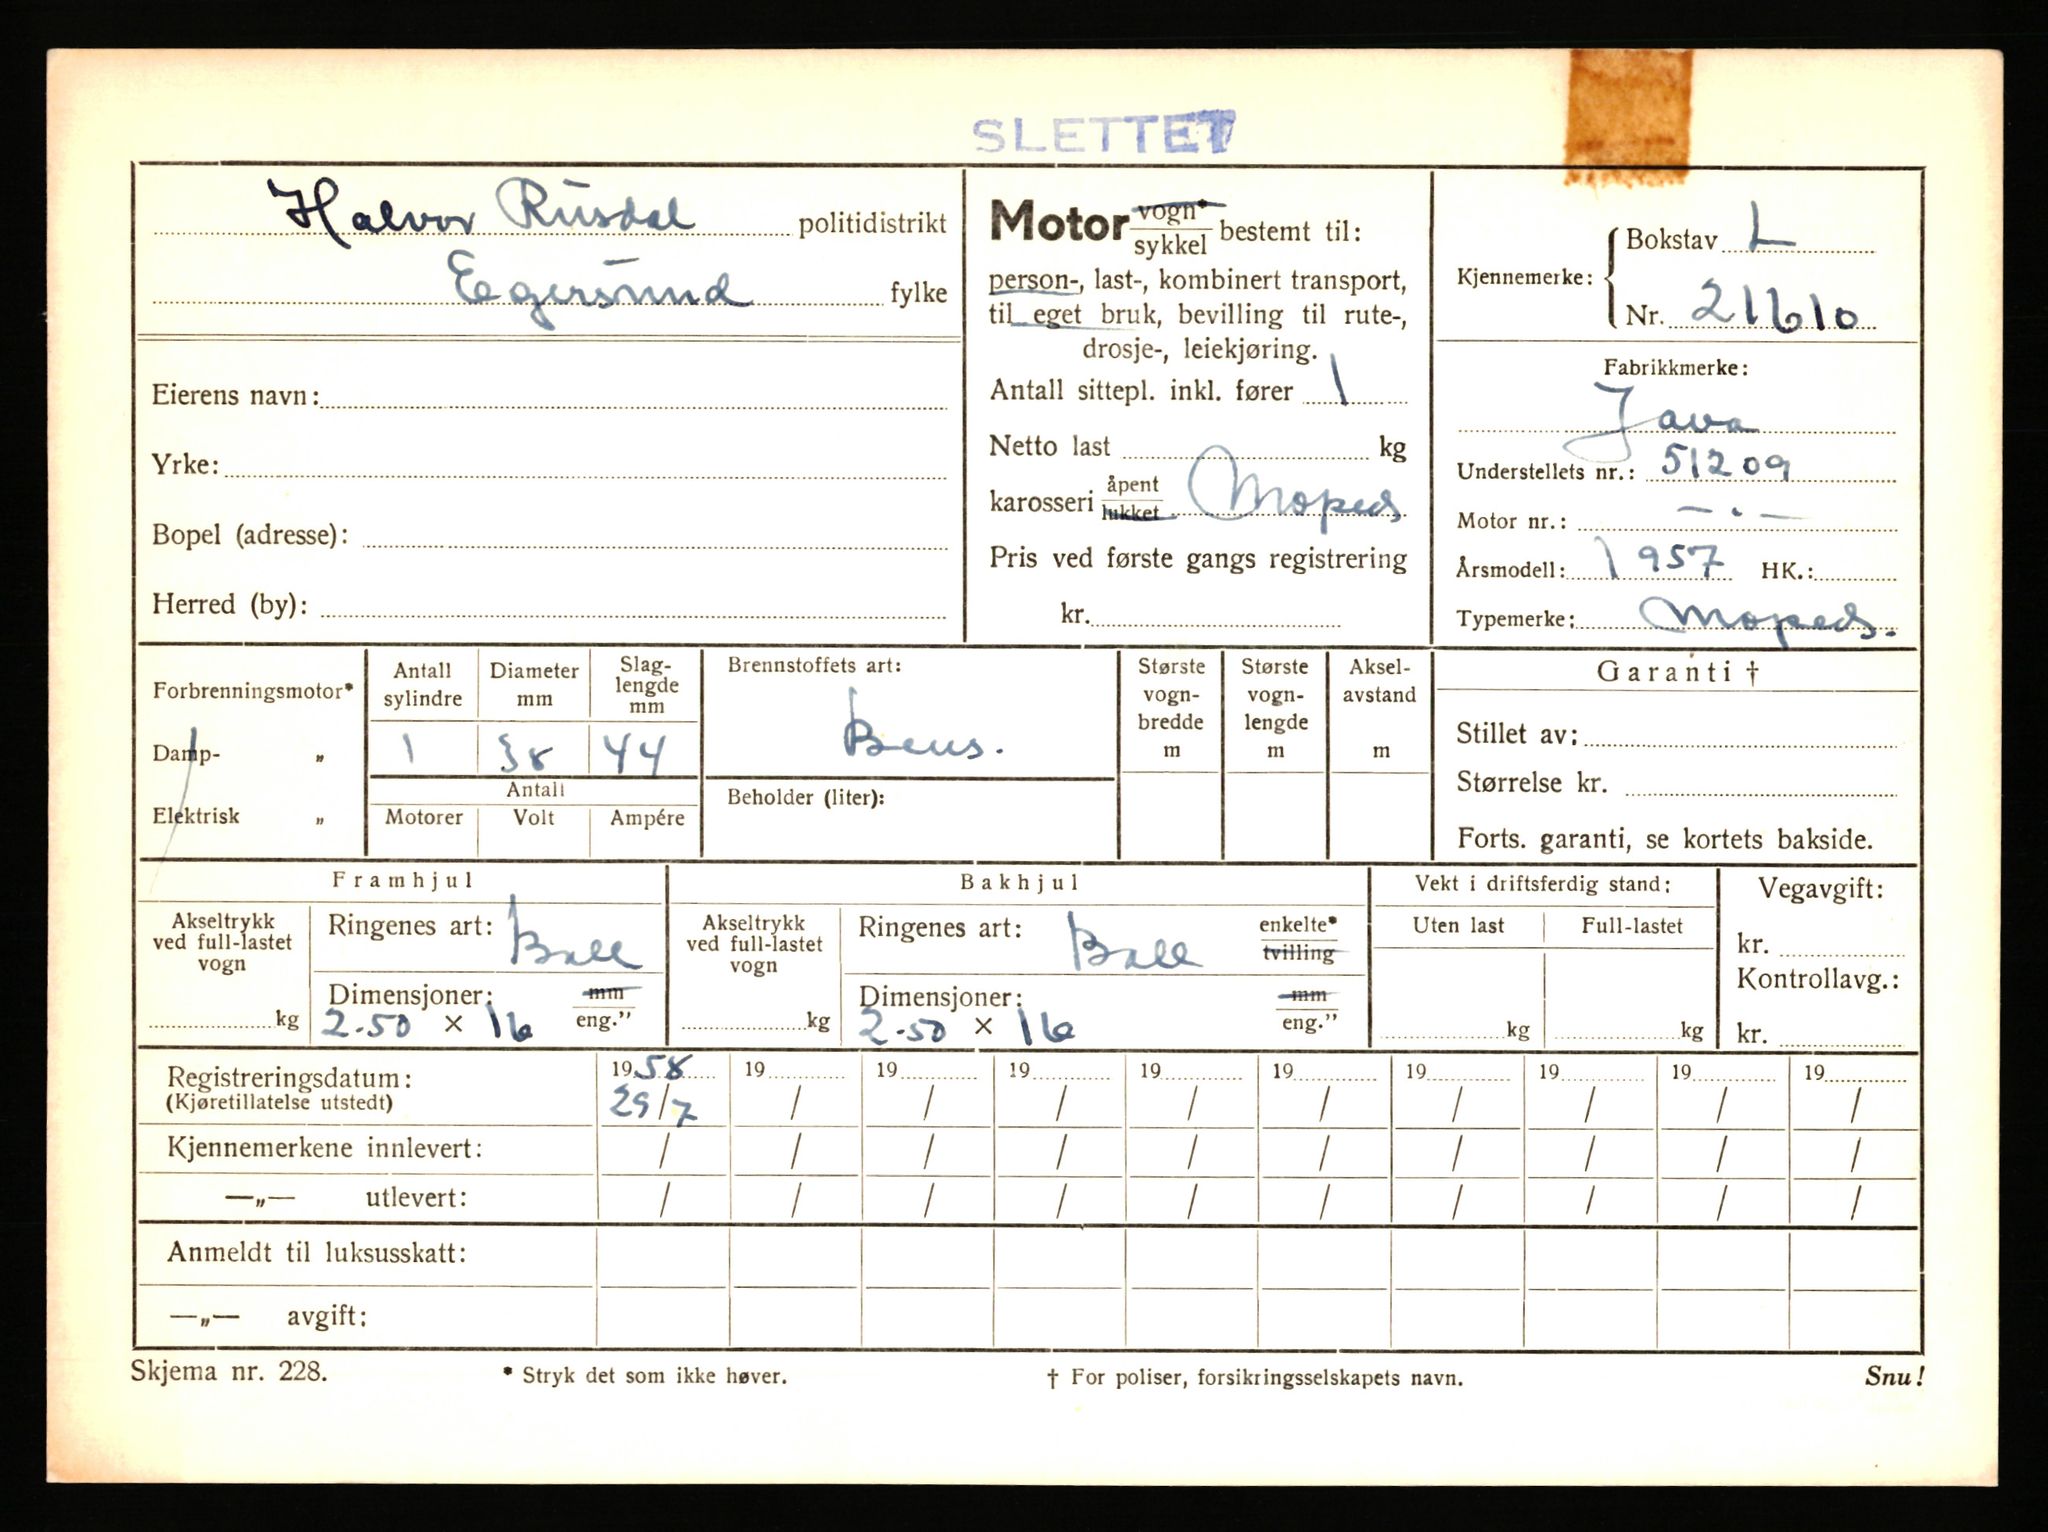 SLETTET
Halvor Rusdal politidistrikt
Egersund fylke
Eierens navn:
Yrke:
Bopel (adresse):
Herred (by):
Motor vogn* sykkel bestemt til:
person-, last-, kombinert transport,
til eget bruk, bevilling til rute-,
drosje-, leiekjøring.
Antall sittepl. inkl. fører 1
Netto last kg
karosseri åpent lukket Moped
Pris ved første gangs registrering
kr.
Kjennemerke: Bokstav L
Nr. 21610
Fabrikkmerke:
Java
Understellets nr.: 51209
Motor nr.: — . —
Årsmodell: 1957 HK.:
Typemerke: Moped.
Forbrenningsmotor*
Damp- „
Elektrisk „
Antall sylindre
Diameter mm
Slag-lengde mm
1 38 44
Antall
Motorer Volt Ampére
Brennstoffets art:
Bens.
Beholder (liter):
Største vogn-bredde m
Største vogn-lengde m
Aksel-avstand m
Garanti †
Stillet av:
Størrelse kr.
Forts. garanti, se kortets bakside.
Framhjul
Akseltrykk ved full-lastet vogn
kg
Ringenes art: Ball
Dimensjoner: mm eng.”
2.50 × 16
Bakhjul
Akseltrykk ved full-lastet vogn
kg
Ringenes art: Ball enkelte* tvilling
Dimensjoner: mm eng.”
2.50 × 16
Vekt i driftsferdig stand:
Uten last Full-lastet
kg kg
Vegavgift:
kr.
Kontrollavg.:
kr.
Registreringsdatum: 1958 19 19 19 19 19 19 19 19 19
(Kjøretillatelse utstedt) 29/7 / / / / / / / / /
Kjennemerkene innlevert: / / / / / / / / / /
—„— utlevert: / / / / / / / / / /
Anmeldt til luksusskatt:
—„— avgift:
Skjema nr. 228. * Stryk det som ikke høver. † For poliser, forsikringsselskapets navn. Snu!